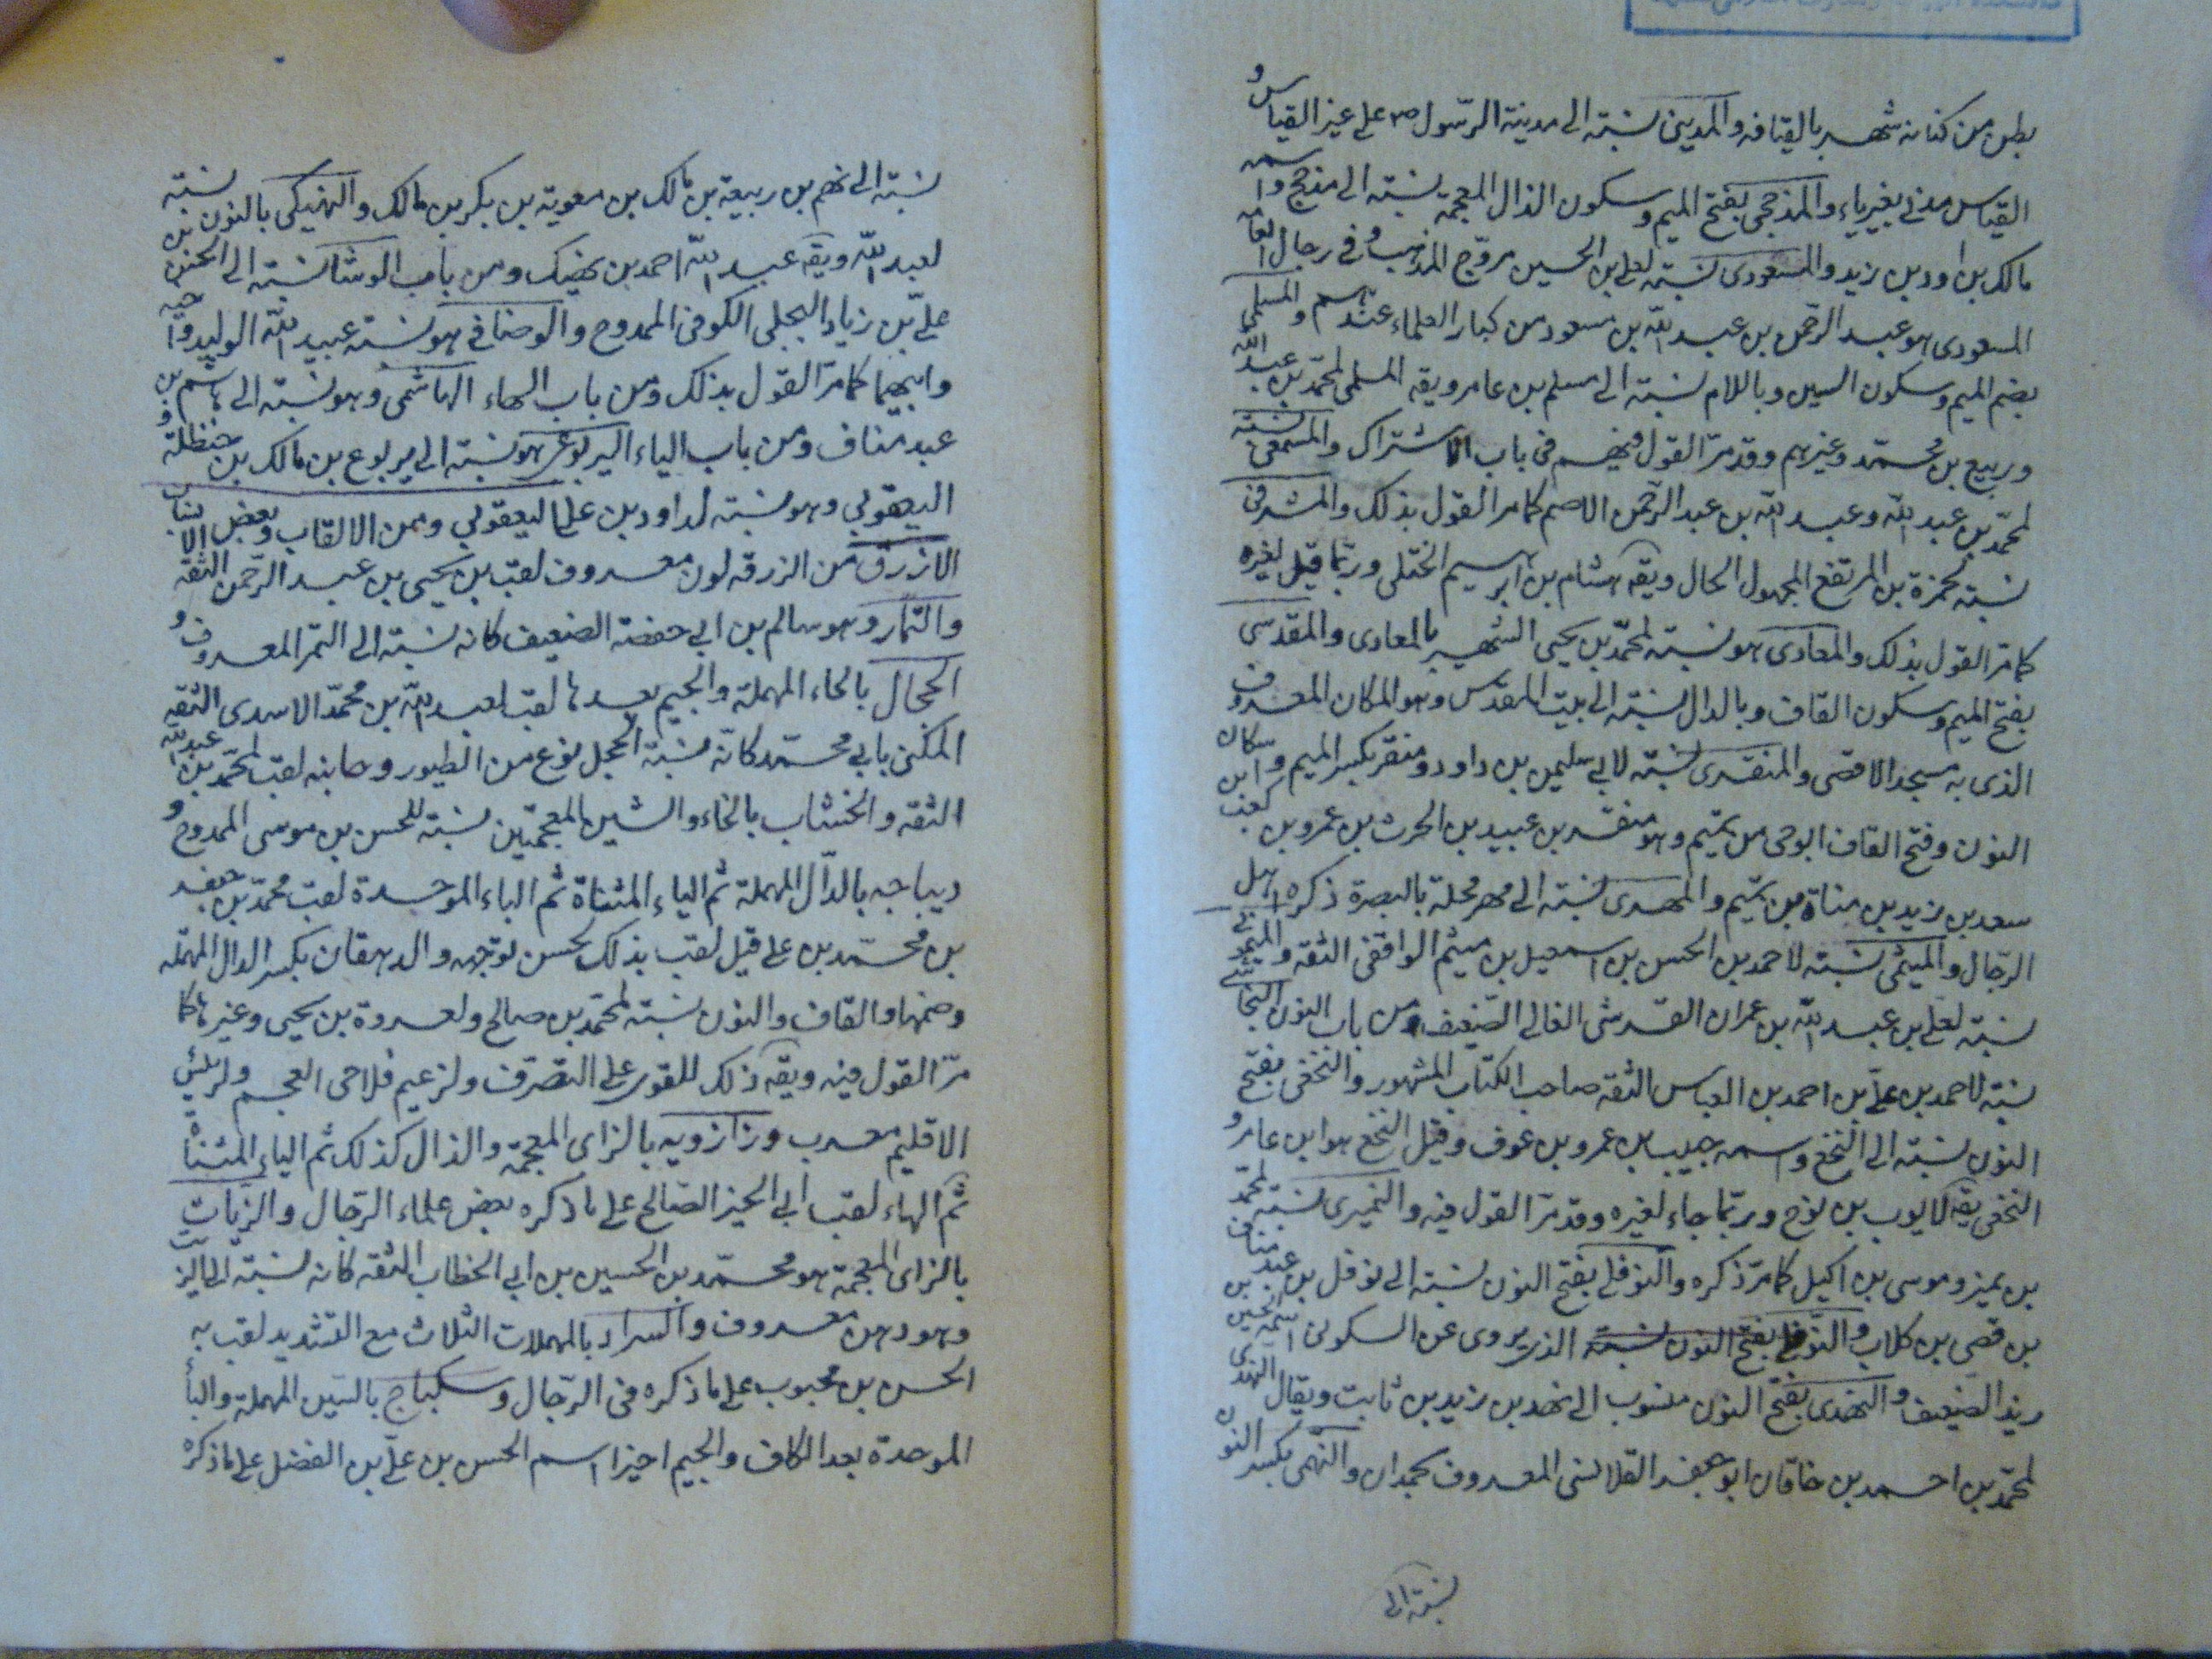 بطن من كنانه شهير بالقيافه والمدينى نسبته الى مدينة الرسول ص على غير القياس و
القياس مدنى بغير ياء والمذحجى بفتح الميم وسكون الذال المعجمة نسبته الى مذحج واسمه
مالك بن اود بن زيد والمسعودى نسبته لعلى بن الحسين مروّج المذهب وفى رجال العامه
المسعودى هو عبد الرحمن بن عبد الله بن مسعود من كبار العلماء عندهم والمسلمى
بضم الميم وسكون السين وباللام نسبته الى مسلم بن عامر ويقه المسلمى لمحمد بن عبد الله
وربيع بن محمد وغيرهم وقد مرّ القول فيهم فى باب الاشتراك والمسمعى نسبته
لمحمد بن عبد الله وعبد الله بن عبد الرحمن الاصم كما مر القول بذلك والمشرقى
نسبته لحمزة بن المرتفع المجهول الحال ويقه هشام بن ابرهيم الختلى وربما قيل لغيره
كما مرّ القول بذلك والمعادى هو نسبته لمحمد بن يحيى الشهير بالمعادى والمقدسى
بفتح الميم وسكون القاف وبالدال نسبته الى بيت المقدس وهو المكان المعروف
الذى به مسجد الاقصى والمنقرى نسبته لابى سليمن بن داود ومنقر بكسر الميم واسكان
النون وفتح القاف ابو حى من تميم وهو منقر بن عبيد بن الحرث بن عمرو بن كعب ابن
سعد بن زيد بن مناة بن تميم والمهرى نسبته الى مهر محلة بالبصرة ذكره اهل
الرجال والميثمى نسبته لاحمد بن الحسن بن اسمعيل بن ميثم الواقفى الثقه والميمونى
نسبته لعلى بن عبد الله بن عمران القرشى الغالى الضعيف ومن باب النون النجاشى
نسبته لاحمد بن على بن احمد بن العباس الثقه صاحب الكتاب المشهور والنخعى بفتح
النون نسبته الى النخع واسمه حبيب بن عمرو بن عوف وقيل النخع هو ابن عامر و
النخعى يقه لايوب بن نوح وربما جاء لغيره وقد مرّ القول فيه والنميرى نسبته لمحمد
بن نمير وموسى بن اكيل كما مرّ ذكره والنوفلى بفتح النون نسبته الى نوفل بن عبد مناف
بن قصى بن كلاب والنوفلى بفتح النون نسبته الذى يروى عن السكونى اسمه الحسين بن
يزيد الضعيف والنهدى بفتح النون منسوب الى نهد بن زيد بن ثابت ويقال النهدى
لمحمد بن احمد بن خاقان ابو جعفر القلانسى المعروف بحمدان والنهمى بكسر النون
نسبته الى
نسبته الى نهم بن ربيعة بن مالك بن معوية بن بكر بن مالك والنهيكى بالنون نسبته
لعبد الله ويقه عبيد الله احمد بن نهيك ومن باب الوشا نسبته الى الحسن بن
على بن زياد البجلى الكوفى الممدوح والوصافى هو نسبته عبيد الله الوليد واخيه
وابيهما كما مرّ القول بذلك ومن باب الهاء الهاشمى وهو نسبته الى هاشم بن
عبد مناف ومن باب الياء اليربوعى هو نسبته الى يربوع بن مالك بن حنظلة و
اليعقوبى وهو نسبته لداود بن على اليعقوبى ومن الالقاب وبعض الانساب
الازرق من الزرقه لون معروف لقب بن يحيى بن عبد الرحمن الثقه
والتمار وهو سالم بن ابى حفصة الضعيف كانه نسبته الى التمر المعروف و
الحجال بالحاء المهملة والجيم بعدها لقب لعبد الله بن محمد الاسدى الثقه
المكنى بابى محمد كانّه نسبة الحجل نوع من الطيور وصابنه لقب لمحمد بن عبد الله
الثقه والخشاب بالخاء والشين المعجمتين نسبته للحسن بن موسى الممدوح و
ديباجه بالدال المهملة ثم الياء المثناة ثم الباء الموحدة لقب محمد بن جعفر
بن محمد بن على قيل لقب بذلك لحسن لوجهه والدهقان بكسر الدال المهمله
وضمها والقاف والنون نسبته لمحمد بن صالح ولعروة بن يحيى وغيرها كما
مرّ القول فيه ويقه ذلك للقوى على التصرف ولزعيم فلاحى العجم ولرئيس
الاقليم معرب وزازويه بالزاى المعجمة والذال كذلك ثم الياء المثناة
ثم الهاء لقب ابى الخير الصالح على ما ذكره بعض علماء الرجال والزيات
بالزاى المعجمة هو محمد بن الحسين بن ابى الخطاب الثقه كانه نسبته الى الزيت
وهو دهن معروف والسراد بالمهملات الثلاث مع التشديد لقب به
الحسن بن محبوب على ما ذكره فى الرجال وسكباج بالسين المهملة والباء
الموحدة بعد الكاف والجيم اخيرا اسم الحسن بن على بن الفضل على ما ذكره